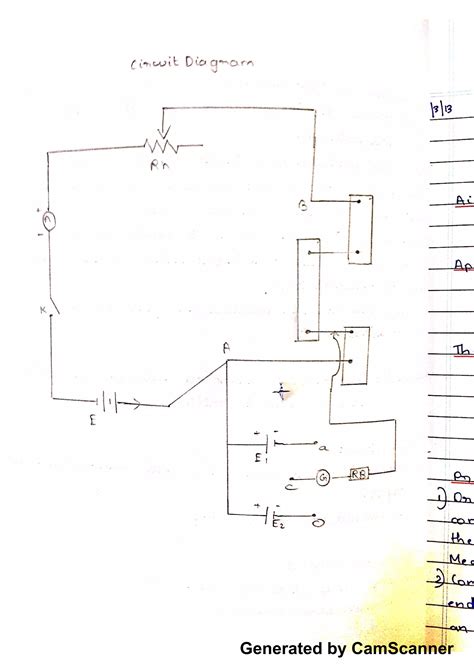 Circuit Diagram
/3/13
Rh
B
Ai
+
A
-
Ap
K
A
Th
E
+ -
E1
a
c
G
RB
+ -
E2
1) On
con
the
Mea
2) Con
end
an
Generated by CamScanner